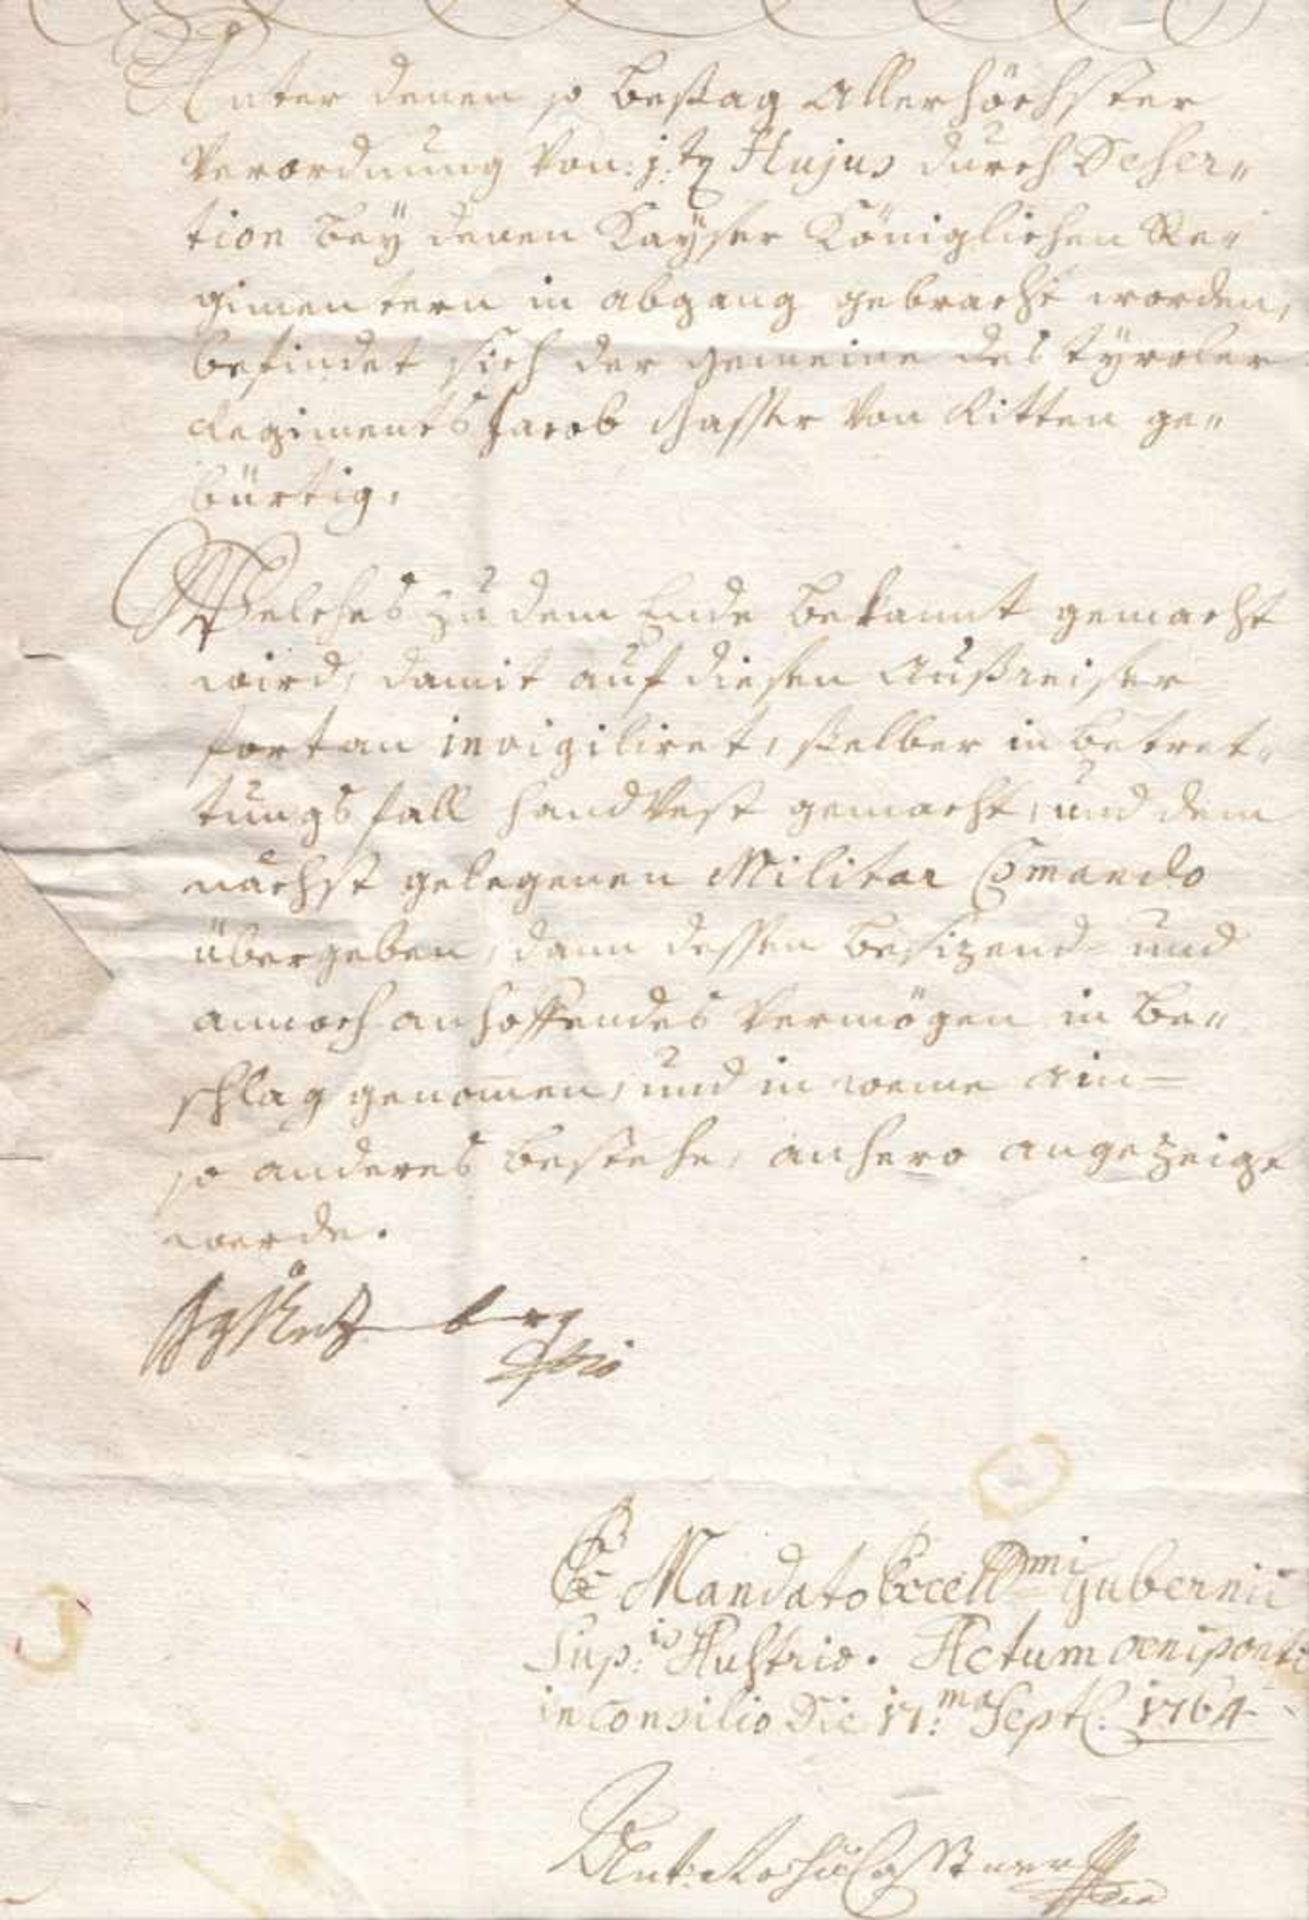 Unter denen so besag Allerhöchster
Verordnung von: j:ten Hujus durch Deser„
tion beÿ denen Kaÿser Königlichen Re„
gimentern in abgang gebracht worden,
befindet sich der gemeine des tÿroler
Regiments Jacob Gasser von Ritten ge„
bürtig.
Welches zu dem Ende bekannt gemacht
wird, damit auf diesen Außreiser
fortan invigiliret, selber in betret„
tungs fall handvest gemacht, und dem
nächst gelegenen Militar Comando
übergeben, dann dessen besizend- und
annoch anhoffendes Vermögen in Be„
schlag genomen, und in weme ein-
so anderes bestehe, anhero angezeigt
werde.
Ex Mandato Excell:mi Gubernii
Sup:is Austriæ. Actum Oeniponti
in Consilio Die 17:ma Sept. 1764